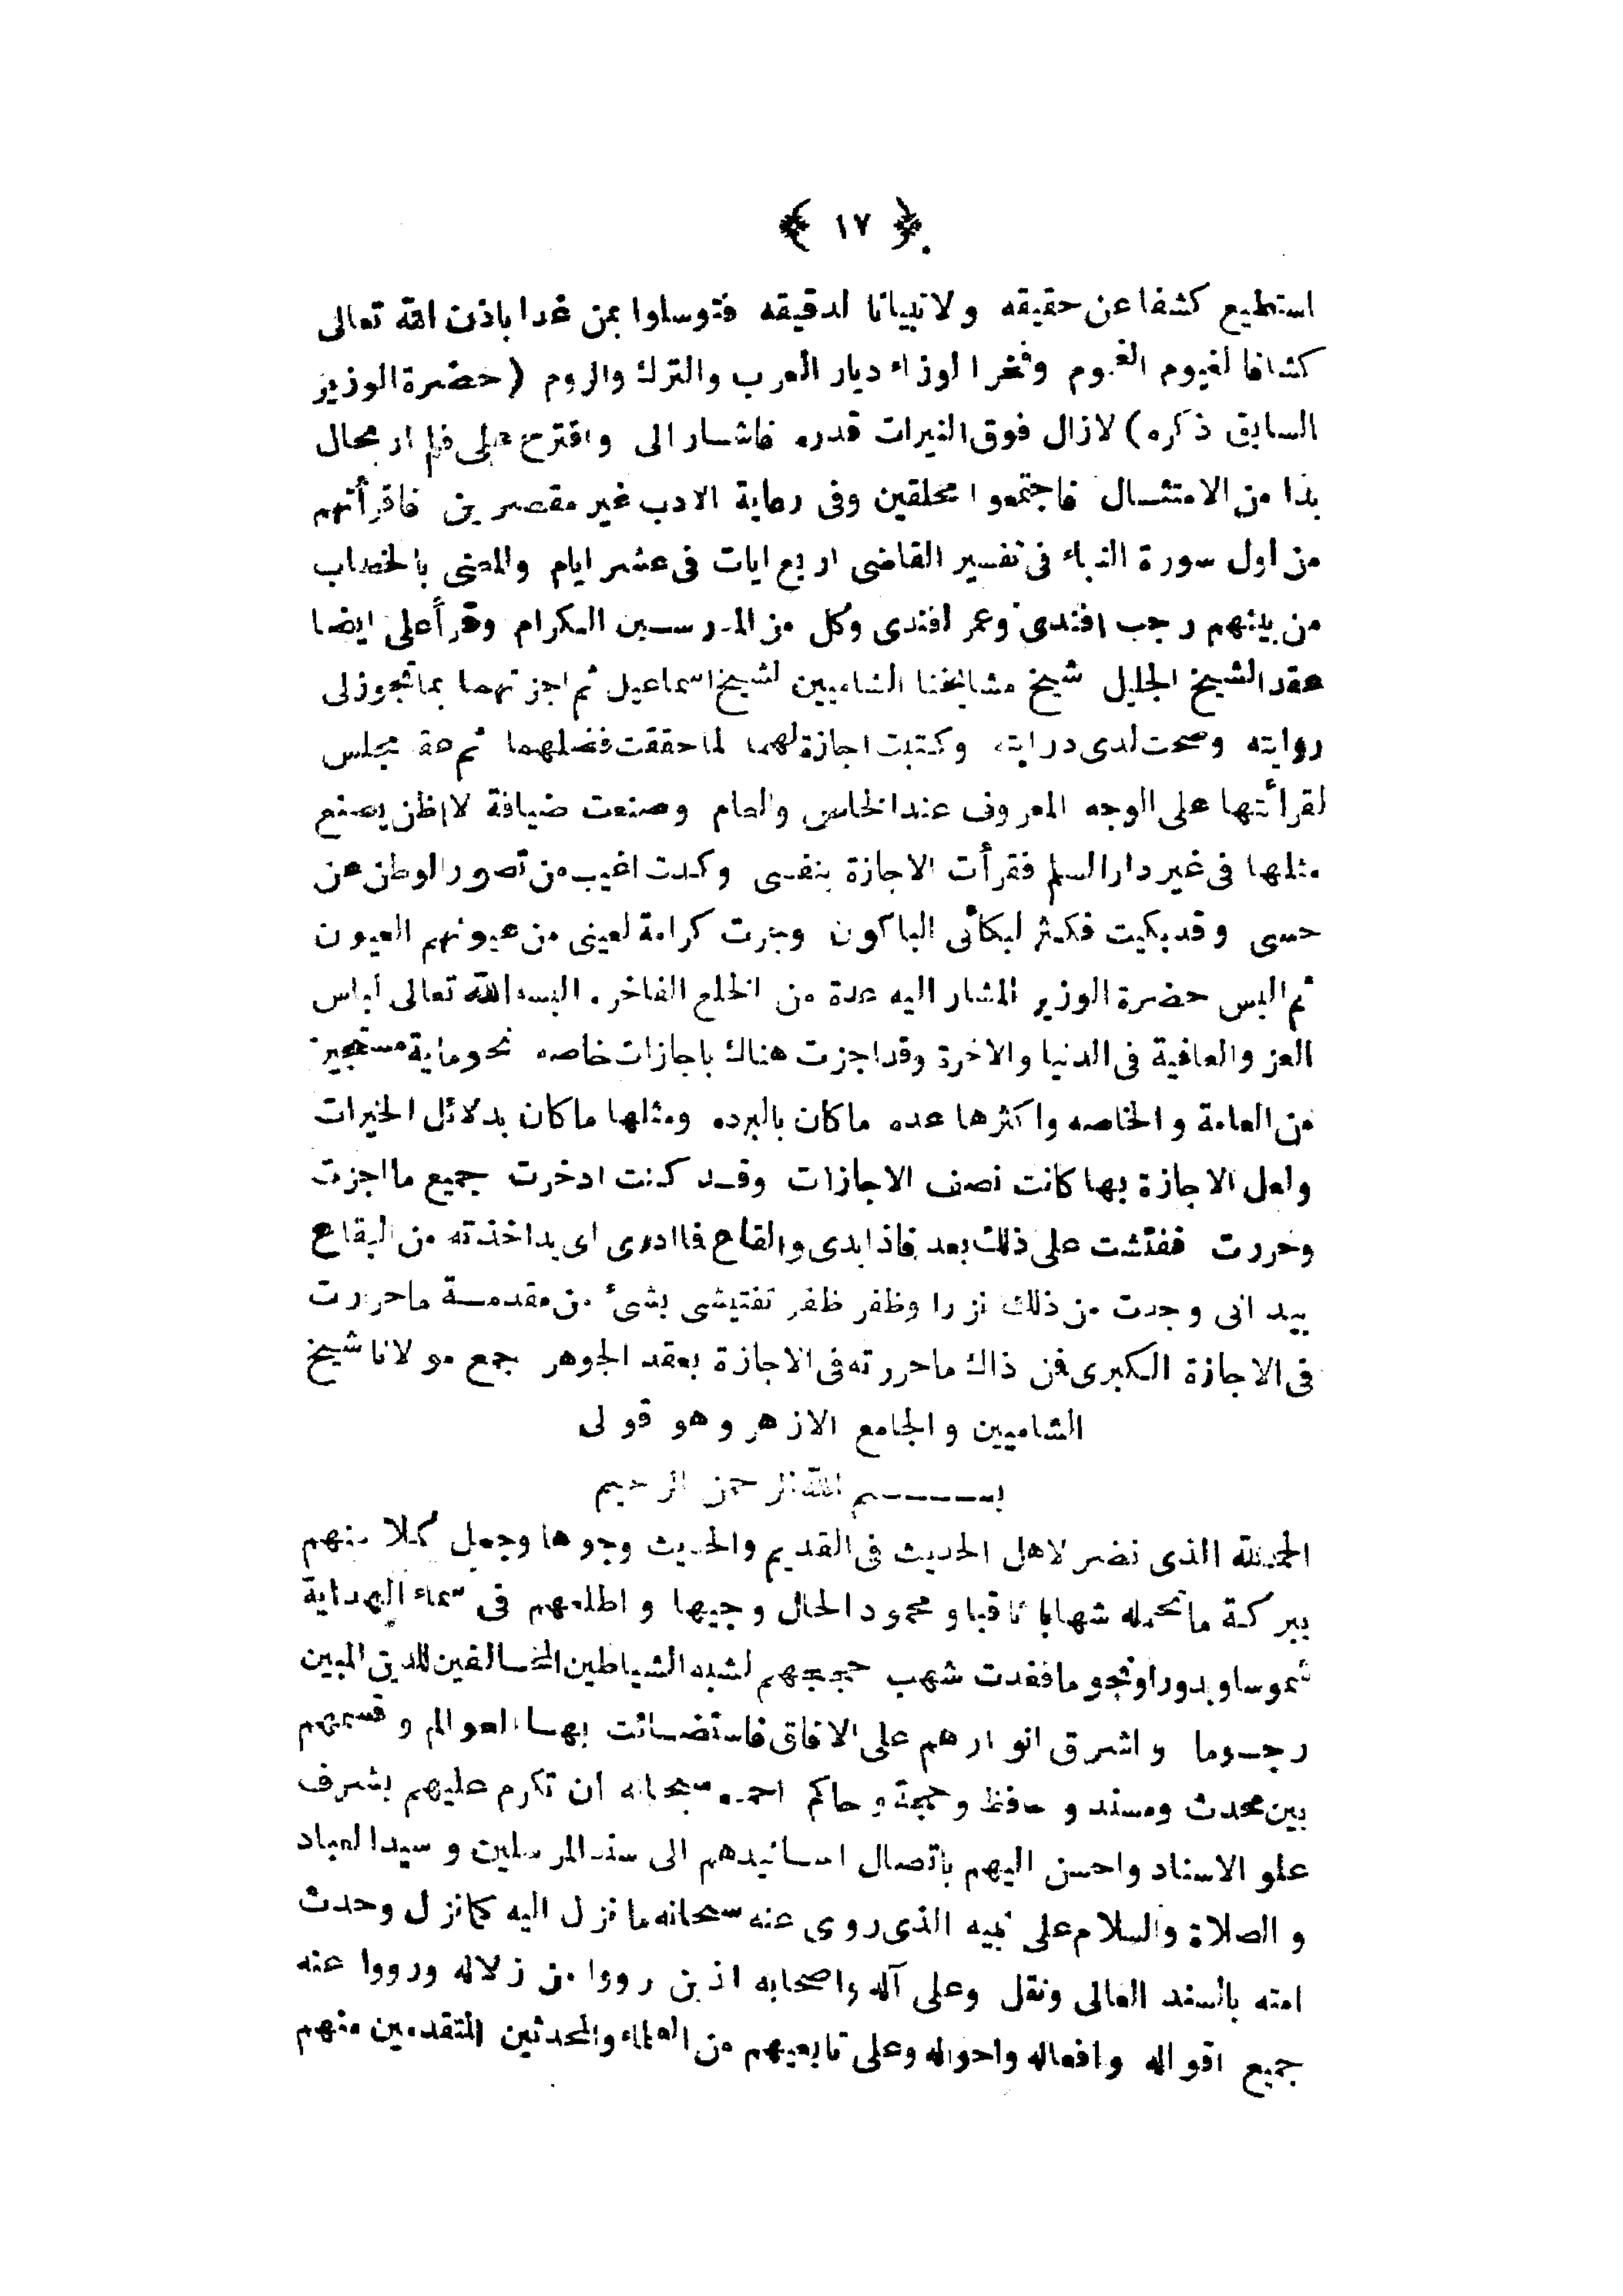 ﴿ ١٧ ﴾
استطيع كشفا عن حقيقه ولا تبيانا لدقيقه فتوسلوا بمن غدا باذن الله تعالى
كشافا لغيوم الغموم وفخرا لوزراء ديار العرب والترك والروم (حضرة الوزير
السابق ذكره) لازال فوق النيرات قدره فاشار الى واقترح على فلم ار مجال
بدا من الامتثال فاجتمعوا محلقين وفى رعاية الادب غير مقصرين فاقرأتهم
من اول سورة النباء فى تفسير القاضى اربع ايات فى عشر ايام والمعنى بالخطاب
من بينهم رجب افندى وعمر افندى وكل من المدرسين الكرام وقرأ على ايضا
عقد الشيخ الجليل شيخ مشايخنا الشاميين لشيخ اسماعيل ثم اجزتهما بما تجوز لى
روايته وصحت لدى درايته وكتبت اجازة لهما لما حققت فضلهما ثم عقد مجلس
لقرأتها على الوجه المعروف عند الخاص والعام وصنعت ضيافة لا اظن يصنع
مثلها فى غير دار السلم فقرأت الاجازة بنفسى وكدت اغيب من تصور الوطن عن
حسى وقد بكيت فكثر لبكائى الباكون وجرت كرامة لعينى من عيونهم العيون
ثم البس حضرة الوزير المشار اليه عدة من الخلع الفاخره البسه الله تعالى لباس
العز والعافية فى الدنيا والاخرة وقد اجزت هناك باجازات خاصه نحو ماية مستجيز
من العامة والخاصه واكثرها عده ما كان بالبرده ومثلها ما كان بدلائل الخيرات
ولعل الاجازة بها كانت نصف الاجازات وقد كنت ادخرت جميع ما اجزت
وحررت ففتشت على ذلك بعد فاذا يدى والقاح فما ادرى اى يد اخذته من البقاع
بيد انى وجدت من ذلك نزرا وظفر ظفر تفتيشى بشئ من مقدمة ما حررت
فى الاجازة الكبرى فن ذاك ما حررته فى الاجازة بعقد الجوهر جمع مولانا شيخ
الشاميين والجامع الازهر وهو قولى
بسم الله الرحمن الرحيم
الحمد لله الذى نضر لاهل الحديث فى القديم والحديث وجوها وجعل كلا منهم
ببركة ما تحمله شهابا ثاقبا ومحمود الحال وجيها واطلعهم فى سماء الهداية
شموسا وبدورا ونجوما فغدت شهب حججهم لشبه الشياطين المخالفين للدين المبين
رجوما واشرق انوارهم على الافاق فاستضائت بها العوالم وقسمهم
بين محدث ومسند وحافظ وحجة وحاكم احمده سبحانه ان تكرم عليهم بشرف
علو الاسناد واحسن اليهم باتصال اسانيدهم الى سند المرسلين وسيد العباد
والصلاة والسلام على نبيه الذى روى عنه سبحانه ما نزل اليه كما نزل وحدث
امته بالسند العالى ونقل وعلى آله واصحابه الذين رووا من زلاله ورووا عنه
جميع اقواله وافعاله واحواله وعلى تابعيهم من العلماء والمحدثين المتقدمين منهم